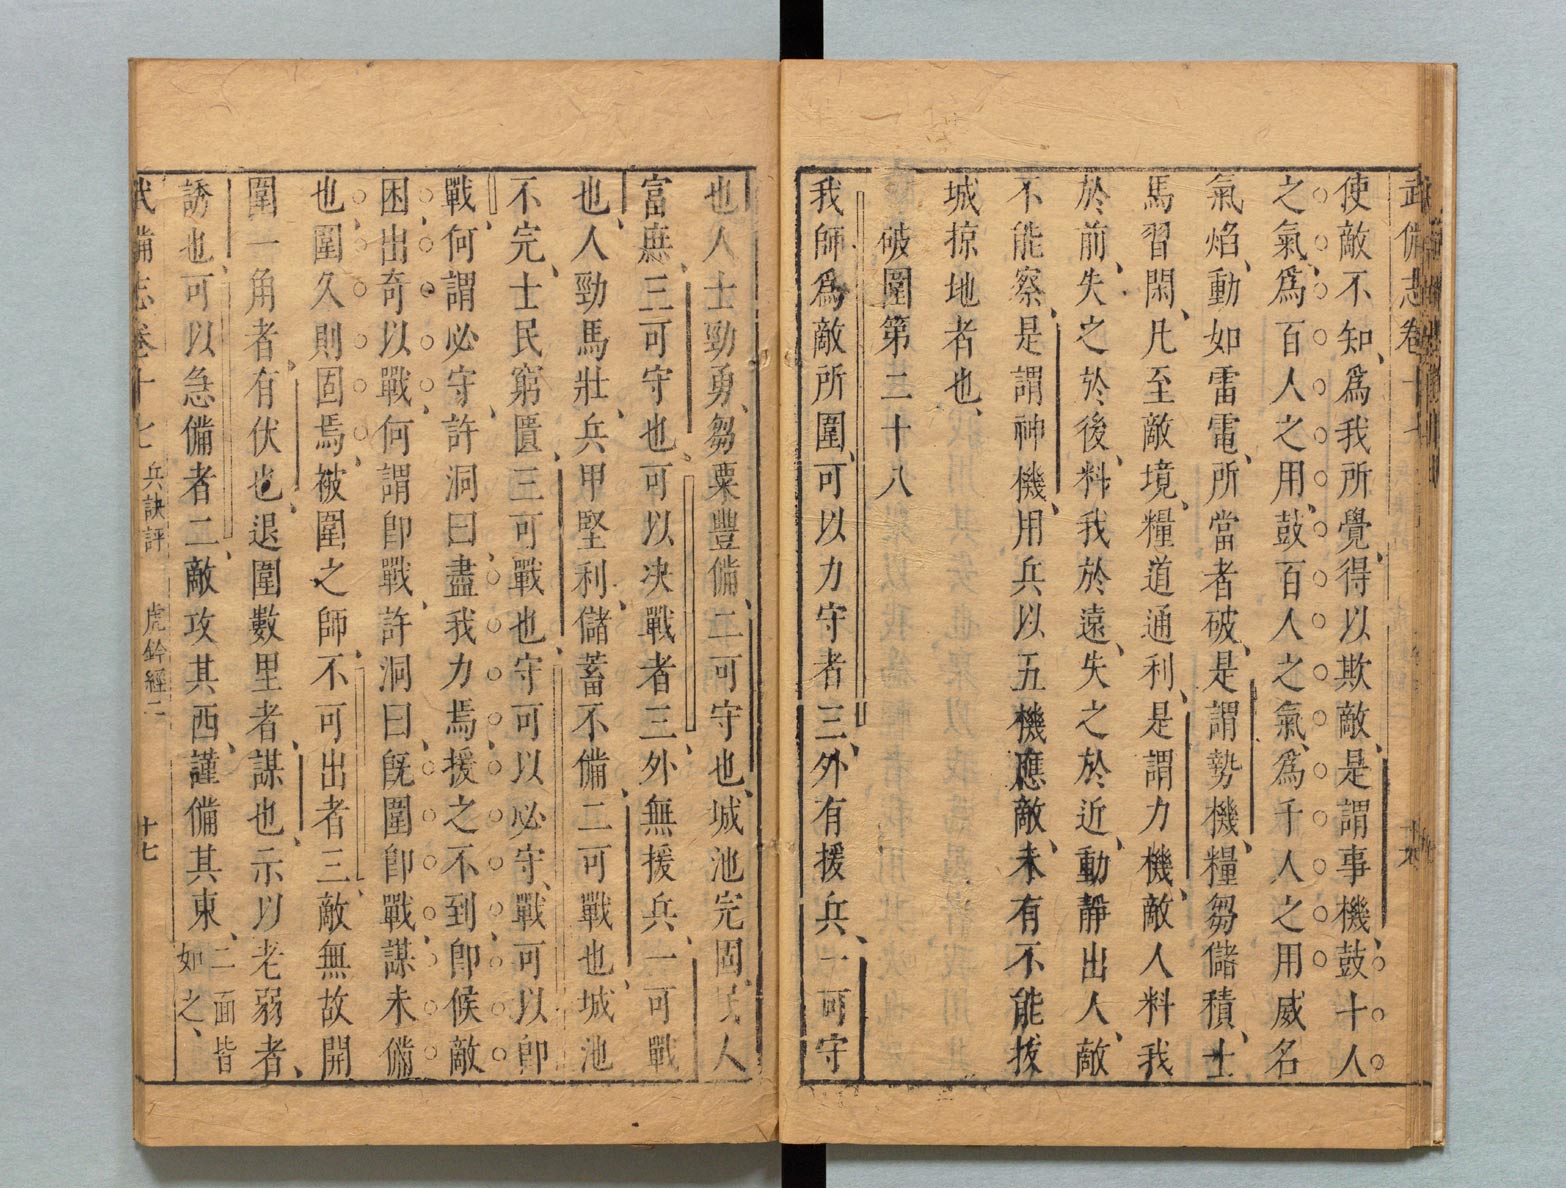 武備志卷十七
使敵不知、爲我所覺、得以欺敵、是謂事機、鼓十人
之氣、爲百人之用、鼓百人之氣、爲千人之用、威名
氣焰、動如雷電、所當者破、是謂勢機、糧芻儲積、士
馬習閑、凡至敵境、糧道通利、是謂力機、敵人料我
於前、失之於後、料我於遠、失之於近、動靜出入、敵
不能察、是謂神機、用兵以五機應敵、未有不能拔
城掠地者也、
破圍第三十八
我師爲敵所圍、可以力守者三、外有援兵、一可守
也、人士勁勇、芻粟豐備、二可守也、城池完固、民人
富庶、三可守也、可以決戰者三、外無援兵、一可戰
也、人勁馬壯、兵甲堅利、儲蓄不備、二可戰也、城池
不完、士民窮匱、三可戰也、守可以必守、戰可以卽
戰、何謂必守、許洞曰、盡我力焉、援之不到、卽候敵
困、出奇以戰、何謂卽戰、許洞曰、旣圍卽戰、謀未備
也、圍久則固焉、被圍之師、不可出者三、敵無故開
圍一角者、有伏也、退圍數里者、謀也、示以老弱者、
誘也、可以急備者二、敵攻其西、謹備其東、二面皆
如之、
武備志卷十七 兵訣評 虎鈐經二 十七